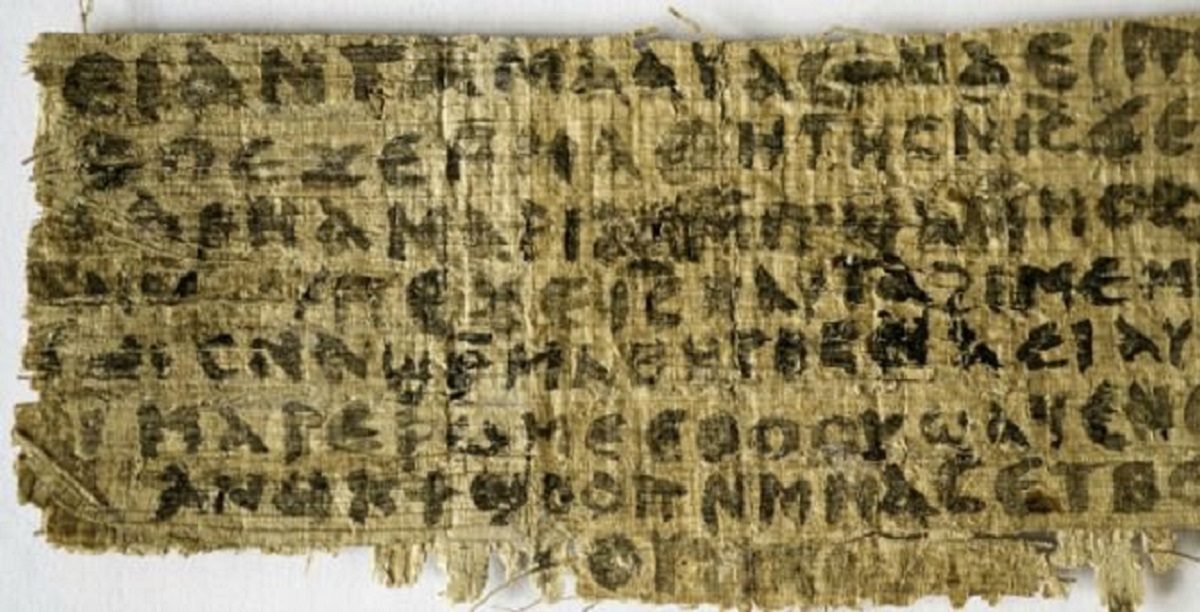 ⲉⲓ ⲁⲛ ⲧⲁⲙⲁⲁⲩ ⲁⲥϯ ⲛⲁⲉⲓ
ⲡⲉϫⲉ ⲙⲙⲁⲑⲏⲧⲏⲥ ⲛⲓ̅ⲥ̅ ϫⲉ
ⲁⲣⲛⲁ ⲙⲁⲣⲓⲁⲙ ⲙⲡϣⲁ ⲙⲙⲟ
ⲡⲉϫⲉ ⲓ̅ⲥ̅ ⲛⲁⲩ ⲧⲁϩⲓⲙⲉ ⲙ
ⲥⲛⲁϣⲣⲙⲁⲑⲏⲧⲏⲥ ⲛⲁⲉⲓ ⲁⲩ
ⲓ ⲙⲁⲣⲉⲣⲱⲙⲉ ⲉⲑⲟⲟⲩ ϣⲁϥⲉⲛ
ⲁⲛⲟⲕ ϯϣⲟⲟⲡ ⲛⲙⲙⲁⲥ ⲉⲧⲃ